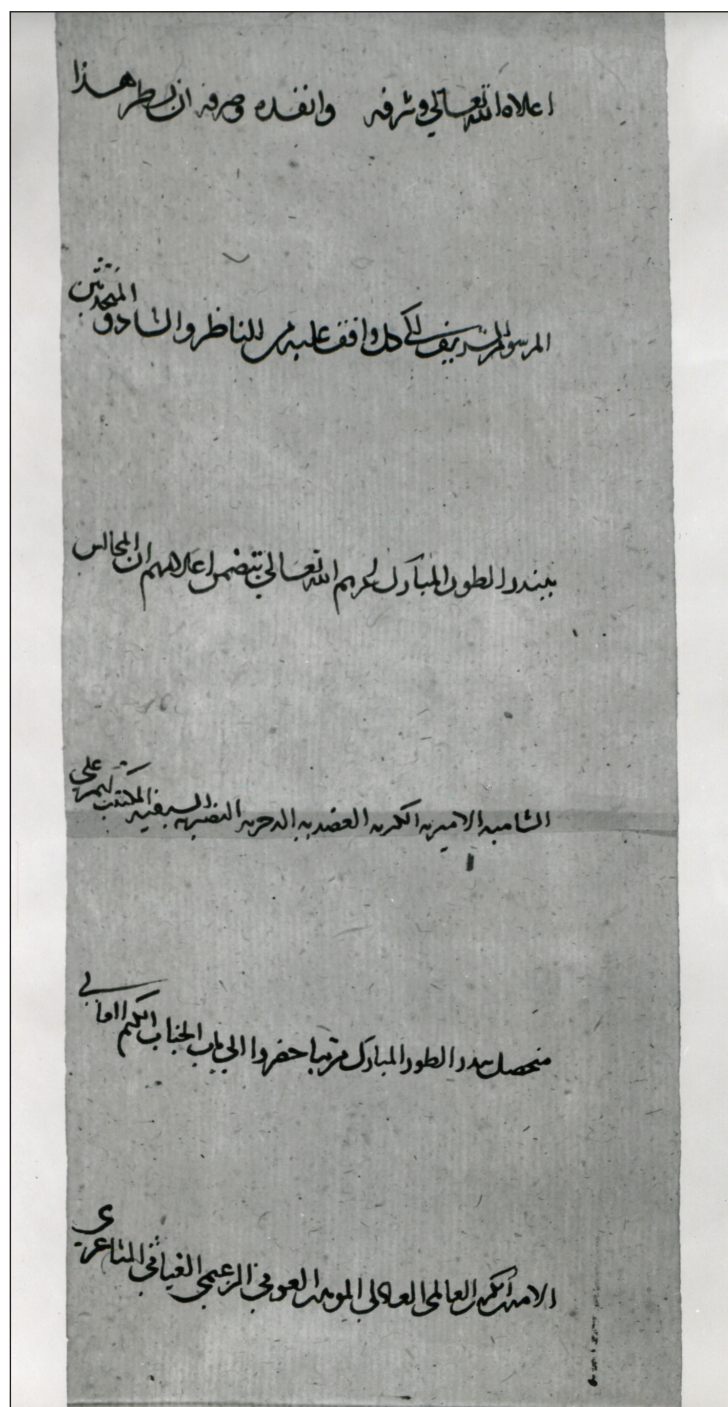 اعلاه الله تعالى وشرفه وانفذه وصرفه ان يسطر هذا
المرسوم الشريف الى كل واقف عليه من الناظر والشاد والمتحدثين
ببندر الطور المبارك اعزهم الله تعالى يتضمن اعلامهم ان المجالس
السامية الاميرية الكبيرية العضدية الذخرية النصيرية السيفية على
متحصل بندر الطور المبارك مرتبا حضروا الى باب الجناب الكريم
الاميري الكبيري العالمي العادلي المؤيدي العوني الزعيمي الغياثي المثاغري